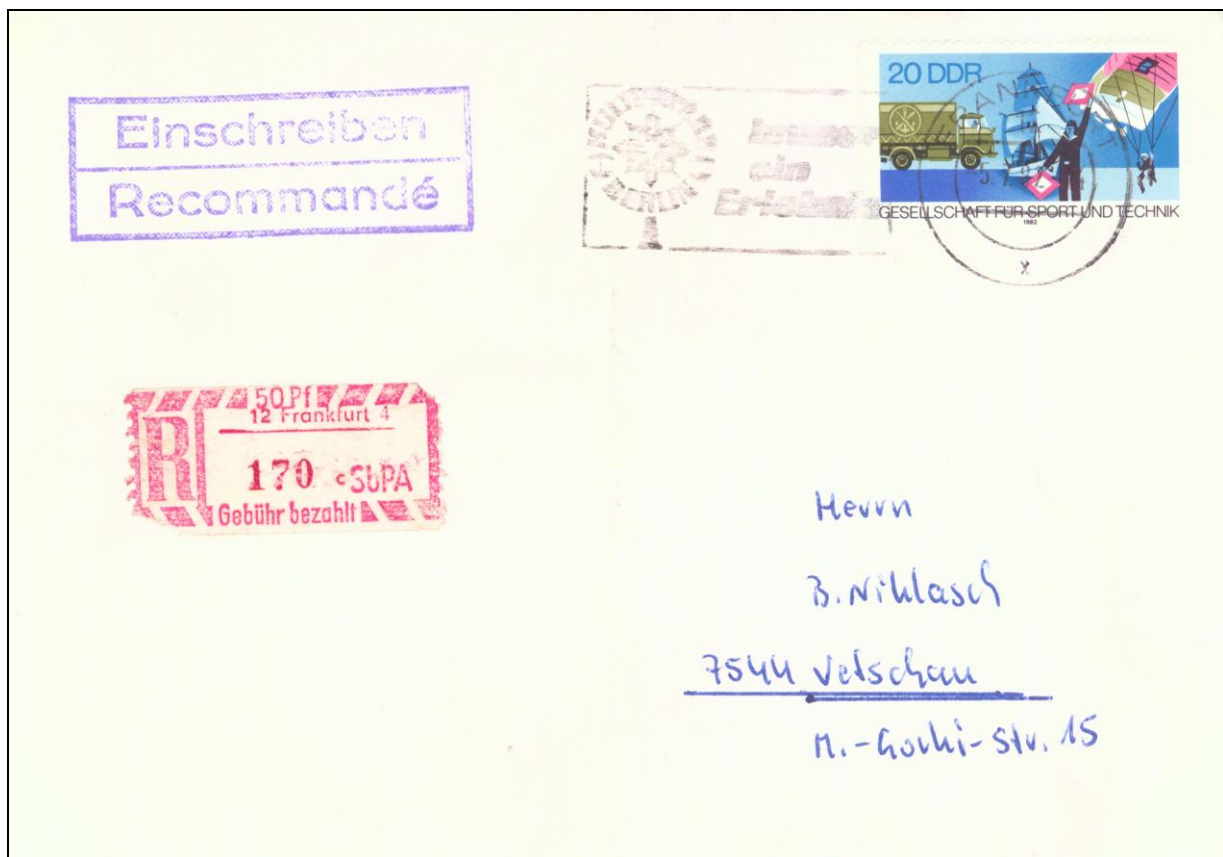 Einschreiben
Recommandé
BERLIN
ein
20 DDR
GESELLSCHAFT FÜR SPORT UND TECHNIK
1982
x
50 Pf
12 Frankfurt 4
R
170 c SbPA
Gebühr bezahlt
Herrn
B. Niklasch
7544 Vetschau
M.-Gorki-Str. 15